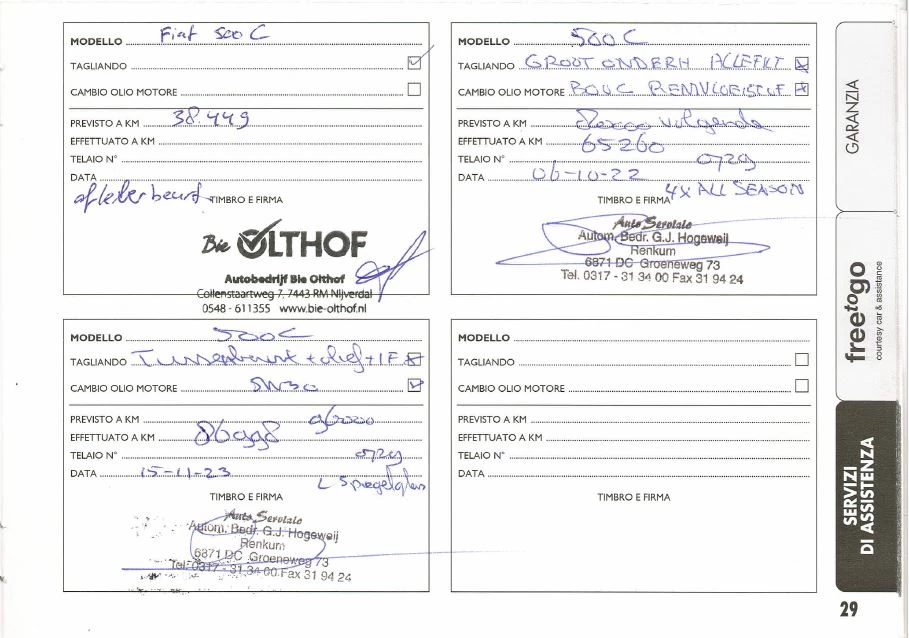 MODELLO Fiat 500 C
TAGLIANDO
CAMBIO OLIO MOTORE
PREVISTO A KM 38.449
EFFETTUATO A KM
TELAIO N°
DATA
afleverbeurt TIMBRO E FIRMA
Bie OLTHOF
Autobedrijf Bie Olthof
Collenstaartweg 7, 7443 RM Nijverdal
0548 - 611355 www.bie-olthof.nl
MODELLO 500 C
TAGLIANDO GROOT ONDERH
CAMBIO OLIO MOTORE
PREVISTO A KM volgende
EFFETTUATO A KM 65260
TELAIO N° 0729
DATA 06-10-22
4X ALL SEASON
TIMBRO E FIRMA
Auto Servizio
Autom. Bedr. G.J. Hogeweij
Renkum
6871 DC Groeneweg 73
Tel. 0317 - 31 34 00 Fax 31 94 24
MODELLO 500C
TAGLIANDO Tussenbeurt + olie +
CAMBIO OLIO MOTORE 5W30
PREVISTO A KM
EFFETTUATO A KM 86098
TELAIO N° 0729
DATA 15-11-23
L Spiegelglas
TIMBRO E FIRMA
Auto Servizio
Autom. Bedr. G.J. Hogeweij
Renkum
6871 DC Groeneweg 73
Tel. 0317 - 31 34 00 Fax 31 94 24
MODELLO
TAGLIANDO
CAMBIO OLIO MOTORE
PREVISTO A KM
EFFETTUATO A KM
TELAIO N°
DATA
TIMBRO E FIRMA
GARANZIA
freetogo
courtesy car & assistance
SERVIZI
DI ASSISTENZA
29